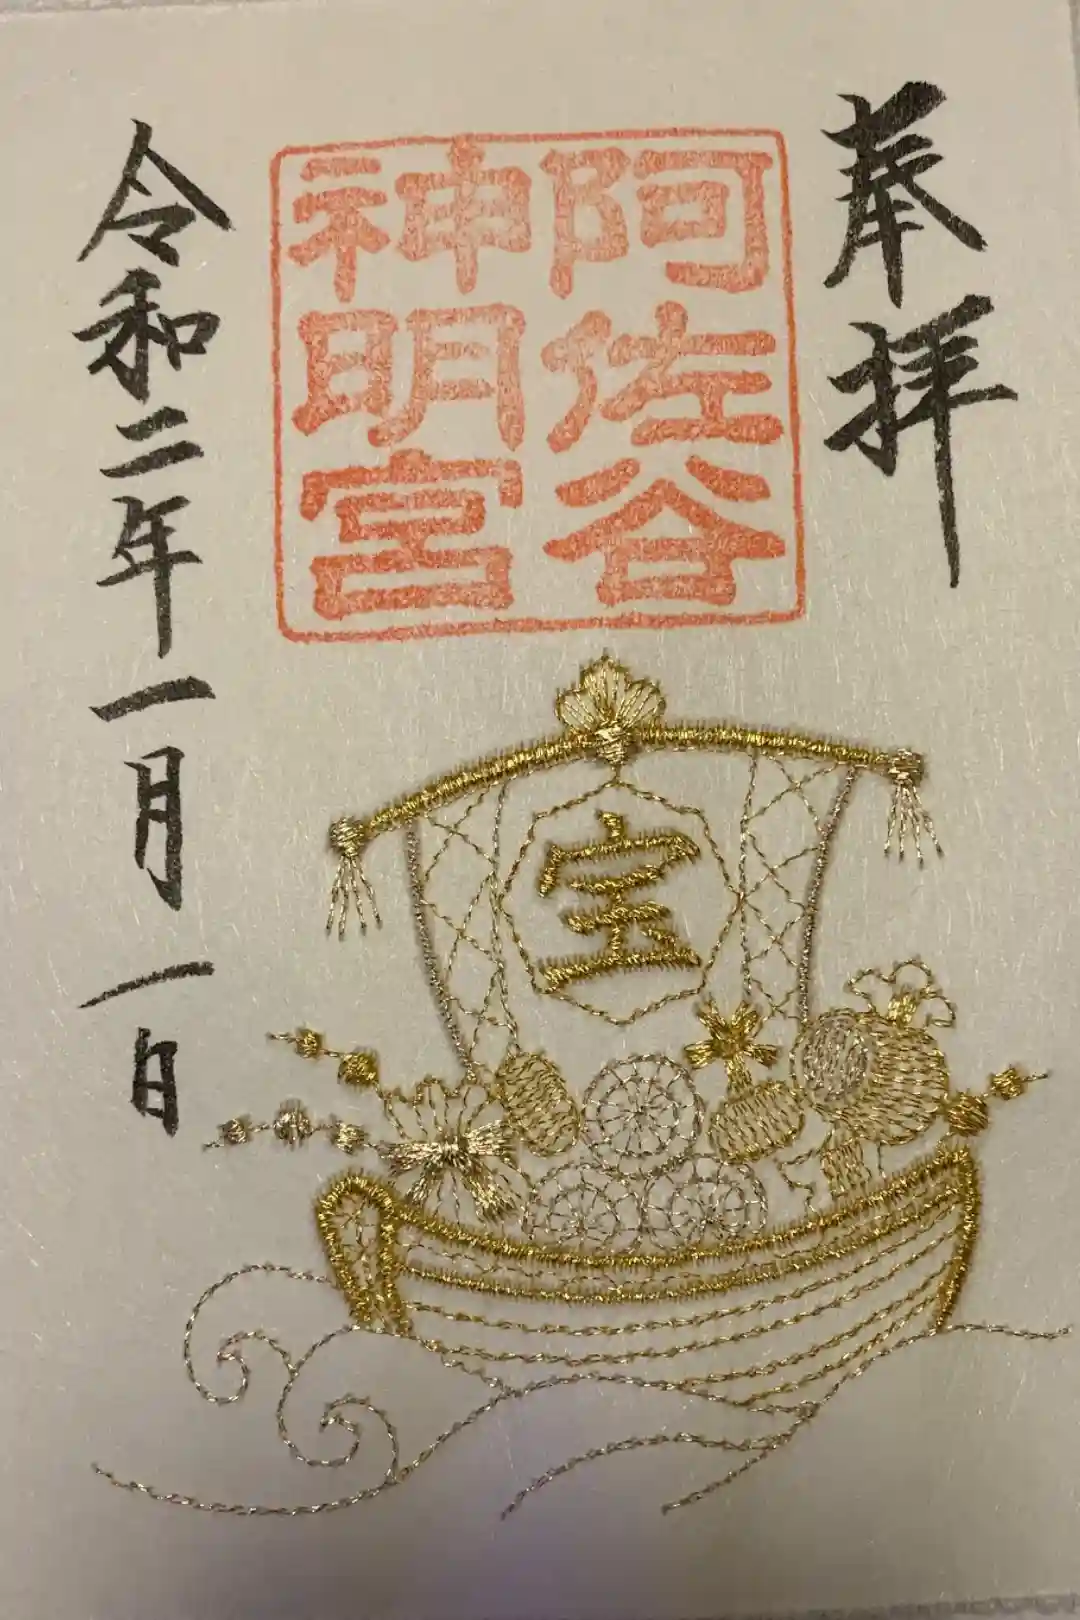 奉拝
阿佐谷
神明宮
宝
令和二年一月一日